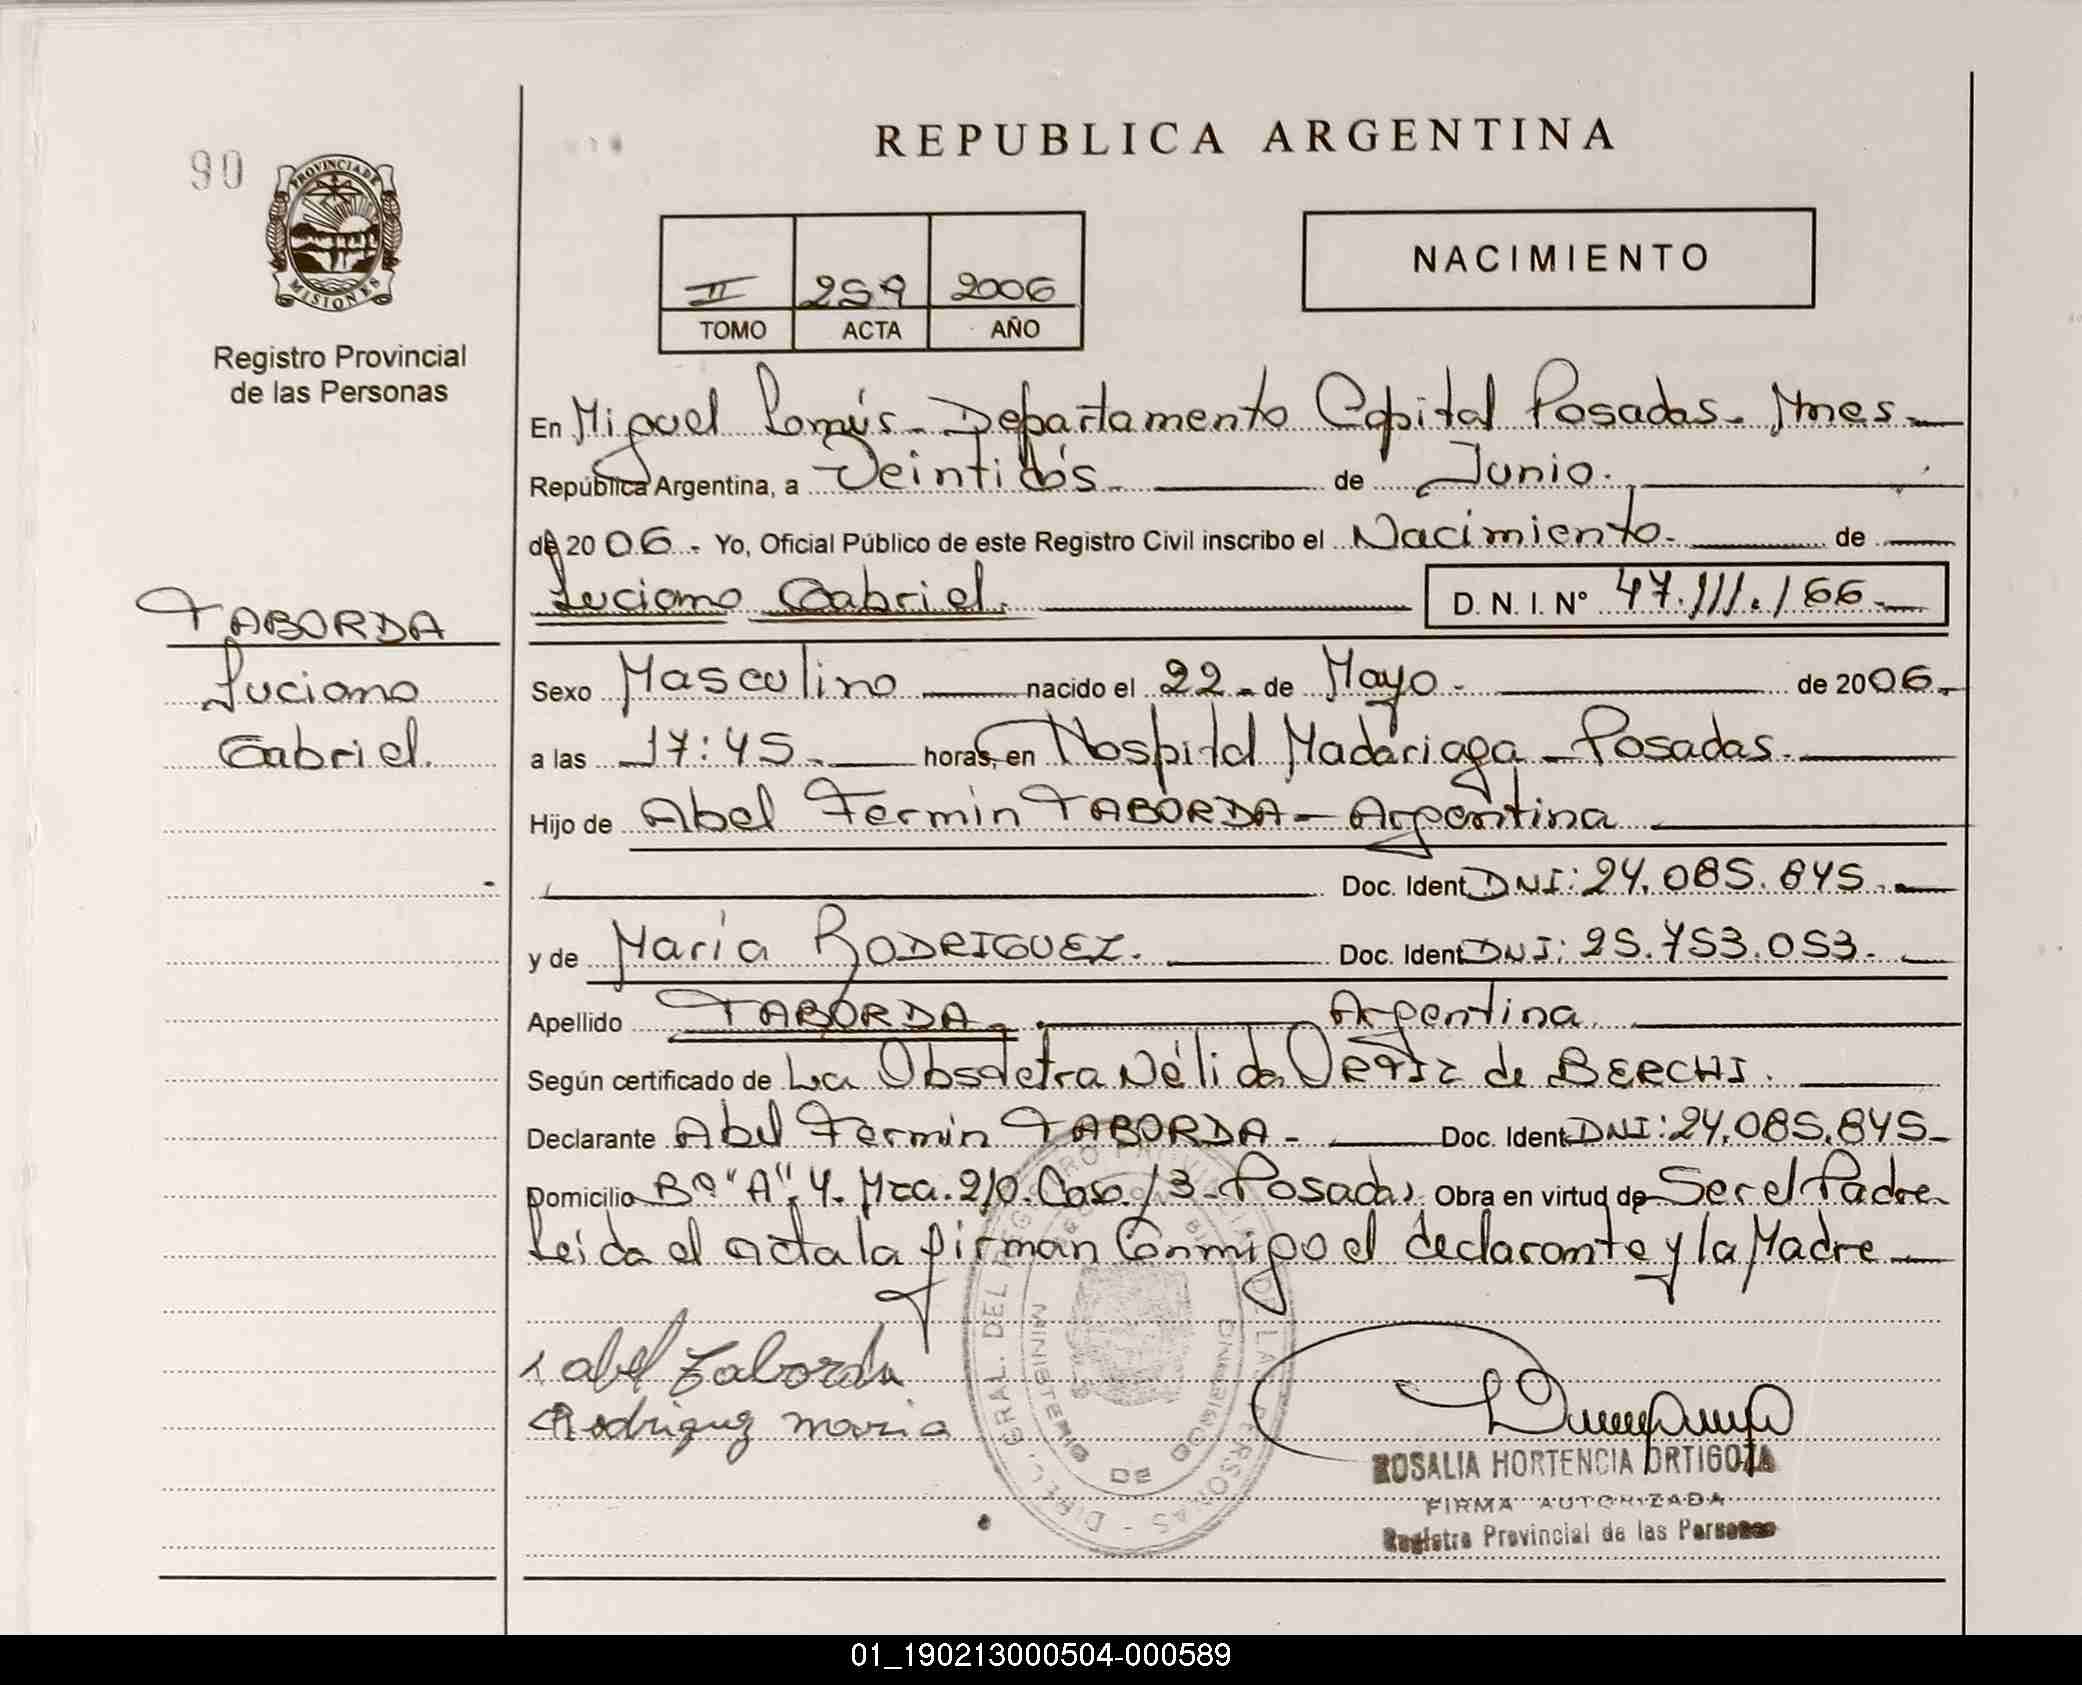 REPUBLICA ARGENTINA
90
PROVINCIA DE
MISIONES
Registro Provincial
de las Personas
NACIMIENTO
II 259 2006
TOMO ACTA AÑO
En Miguel Lanús - Departamento Capital Posadas - Mnes -
República Argentina, a Veintidós - de Junio.
de 2006 - Yo, Oficial Público de este Registro Civil inscribo el Nacimiento - de
Luciano Gabriel. D. N. I. N° 47.111.166 -
TABORDA
Luciano
Gabriel.
Sexo Masculino nacido el 22 - de Mayo - de 2006 -
a las 17:45 - horas, en Hospital Madariaga - Posadas -
Hijo de Abel Fermin TABORDA - Argentina
Doc. Ident. DNI: 24.085.845 -
y de María RODRIGUEZ. Doc. Ident. DNI: 25.753.053 -
Apellido TABORDA - Argentina
Según certificado de La Obstetra Nélida ORTIZ de BERCHI.
Declarante Abel Fermin TABORDA - Doc. Ident. DNI: 24.085.845 -
Domicilio B° "A" 4. Mza. 210. Casa 13 - Posadas. Obra en virtud de Ser el Padre
Leida el acta la firman Conmigo el declarante y la Madre
Abel Taborda
Rodriguez maria
DIREC. GRAL. DEL REGISTRO PROVINCIAL DE LAS PERSONAS
MINISTERIO DE GOBIERNO
ROSALIA HORTENCIA ORTIGOZA
FIRMA AUTORIZADA
Registro Provincial de las Personas
01_190213000504-000589